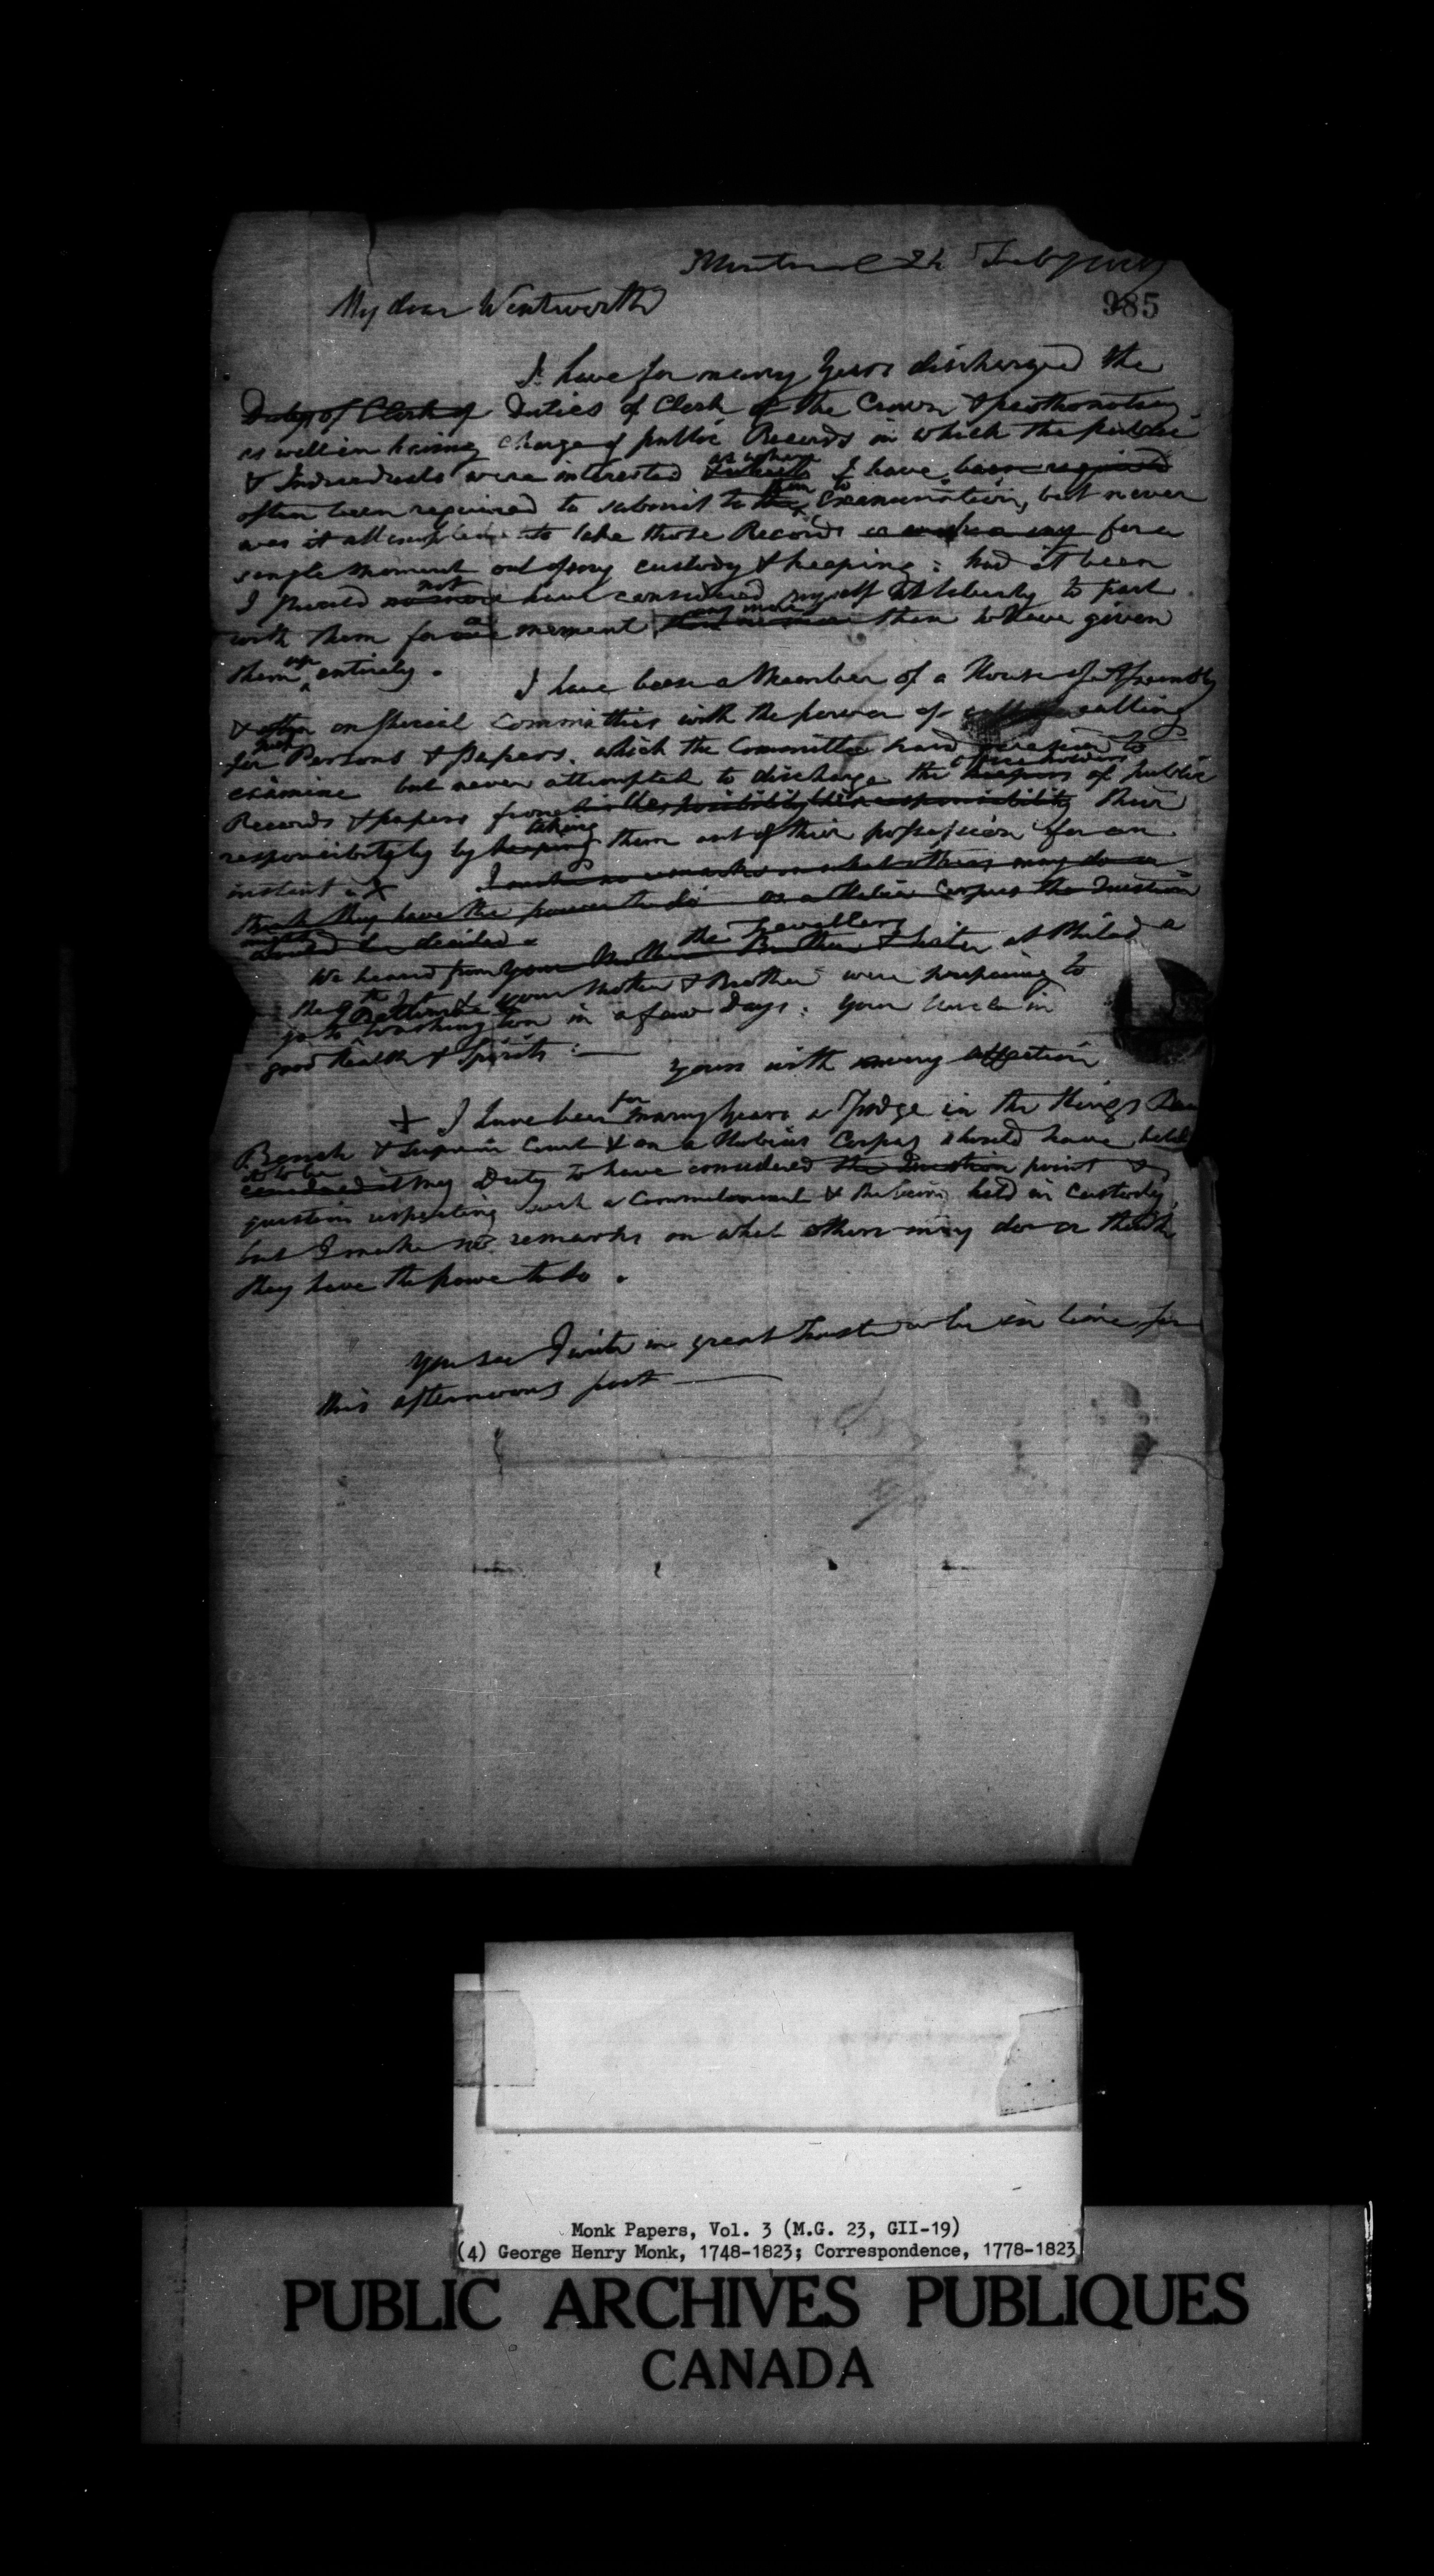 Montreal 24 Feby
985
My dear Wentworth
I have for many Years discharged the
Duty of Clerk of Duties of Clerk of the Crown & prothonotary
as well in having charge of public Records in which the public
& Individuals were interested as where I have been required
often been required to submit to them to Examination, but never
was it attempted to take those Records for a
single moment out of my custody & keeping: had it been
I should no more not have considered myself at liberty to part
with them for a moment any more than to have given
them up entirely.
I have been a Member of a House of Assembly
& often on Special Committees with the power of calling
for Persons & papers, which the Committee had occasion to
examine but never attempted to discharge the keepers of public
Records & papers from his responsibility their responsibility their
responsibility by keeping taking them out of their possession for an
instant x
I make no remarks on what others may do or
think they have the power to do on a Habeas Corpus the Question
would be decided
We heard from your Mother Brother the Travellers & Sister at Philad a
the your Mother & Brother were preparing to
go to Washington in a few Days: Your Uncle in
good Health & Spirits:—
Yours with every affection
x I have been for many Years a Judge in the Kings
Bench & Supreme Court & on a Habeas Corpus should have held
it to be considered it my Duty to have considered the Question point &
question respecting such a Commitment & held in Custody,
but I make no remarks on what others may do or think
they have the power to do.
You see I write in great haste to be in time for
this afternoons post —
Monk Papers, Vol. 3 (M.G. 23, GII-19)
(4) George Henry Monk, 1748-1823; Correspondence, 1778-1823
PUBLIC ARCHIVES PUBLIQUES
CANADA